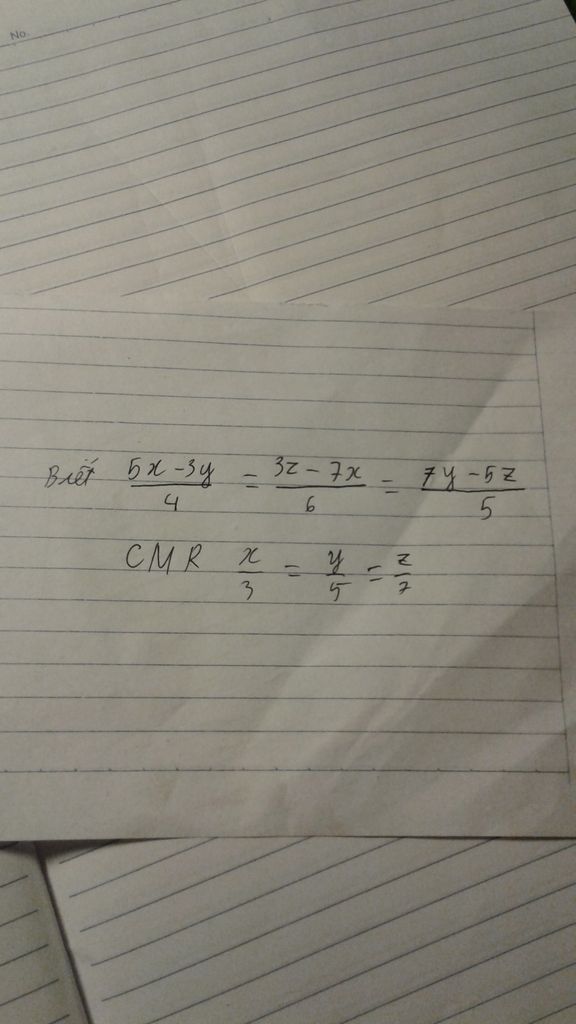 No.
Biết 5x - 3y / 4 = 3z - 7x / 6 = 7y - 5z / 5
CMR x / 3 = y / 5 = z / 7